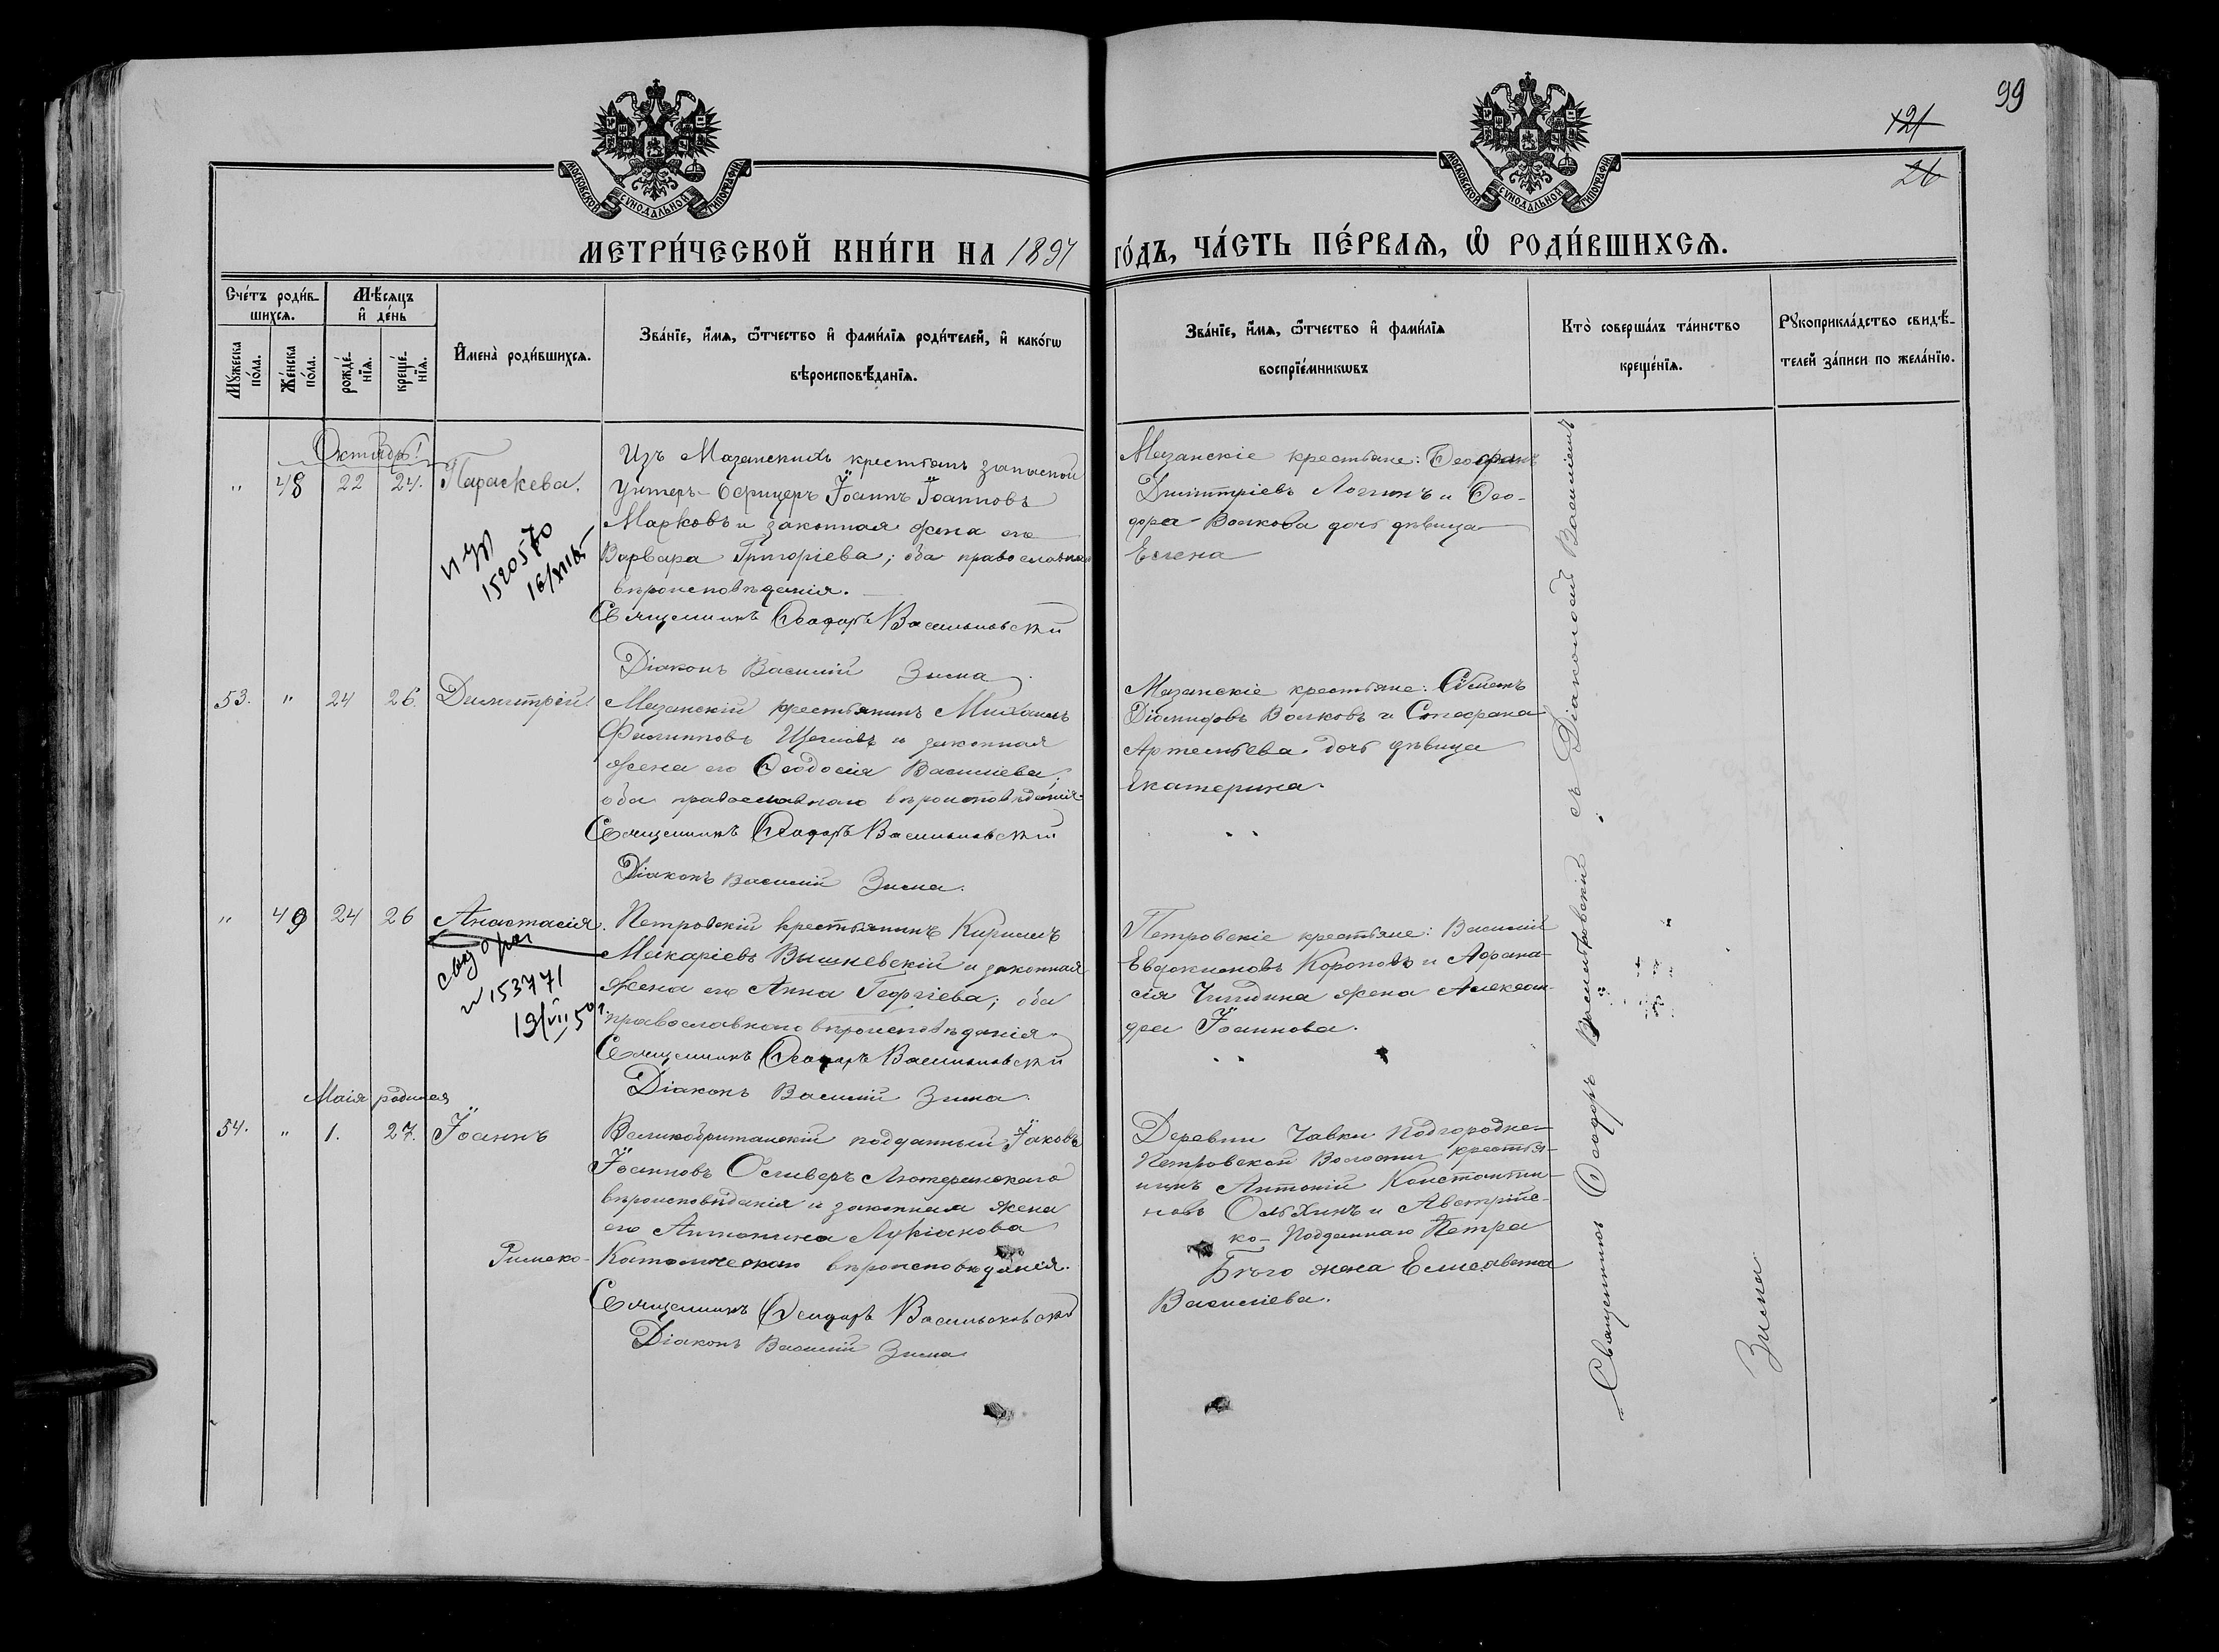 99
121
26
МОСКОВСКОЙ СУНОДАЛЬНОЙ ТИПОГРАФІИ
МОСКОВСКОЙ СУНОДАЛЬНОЙ ТИПОГРАФІИ
МЕТРИ́ЧЕСКОЙ КНИ́ГИ НА 1897 ГО́ДЪ, ЧА́СТЬ ПЕ́РВАѦ, Ѡ РОДИ́ВШИХСѦ.
Сче́тъ роди́в-
шихсѧ.
Мѣ́сѧцъ
и҆ де́нь
Мꙋ́жеска
по́ла.
Же́нска
по́ла.
рожде́-
нїѧ.
креще́-
нїѧ.
И҆мена̀ роди́вшихсѧ.
Зва́нїе, и҆́мѧ, ѻ҆́тчество и҆ фамѝлїѧ роди́телей, и҆ како́гѡ
вѣроисповѣ́данїѧ.
Зва́нїе, и҆́мѧ, ѻ҆́тчество и҆ фами́лїѧ
воспрїе́мникѡвъ
Кто̀ соверша́лъ та́инство
креще́нїѧ.
Рꙋкоприкла́дство свидѣ́-
телей за́писи по жела́нїю.
Октябрь!
" 48 22 24. Параскева.
Изъ Мазанскихъ крестьянъ запасной
Унтеръ-Офицеръ Іоаннъ Іоанновъ
Марковъ и законная жена его
Варвара Григоріева; оба православнаго
вѣроисповѣданія.
Священникъ Ѳеодоръ Васильковскій
Діаконъ Василій Зима
Мазанскіе крестьяне: Ѳеофанъ
Димитріевъ Логинъ и Ѳео-
дора Волкова дочь дѣвица
Елена
1520570
53. " 24 26. Димитрій.
Мазанскій крестьянинъ Михаилъ
Филипповъ Щегловъ и законная
жена его Ѳеодосія Василіева;
оба православнаго вѣроисповѣданія.
Священникъ Ѳеодоръ Васильковскій
Діаконъ Василій Зима.
Мазанскіе крестьяне:
Діомидовъ Волковъ и Стефана
Артемьева дочь дѣвица
Екатерина.
" 49 24 26 Анастасія.
№ 153771
19/VII 50 г.
Петровскій крестьянинъ Кириллъ
Макаріевъ Вишневскій и законная
жена его Анна Георгіева; оба
православнаго вѣроисповѣданія.
Священникъ Ѳеодоръ Васильковскій
Діаконъ Василій Зима.
Петровскіе крестьяне: Василій
Евдокимовъ Короповъ и Афана-
сія Чиндина жена Алексан-
дра Іоаннова.
Маія родился
54. " 1. 27. Іоаннъ
Великобританскій подданный Іаковъ
Іоанновъ Оливеръ Лютеранскаго
вѣроисповѣданія и законная жена
его Антонина Лукіанова
Римско-Католическаго вѣроисповѣданія.
Священникъ Ѳеодоръ Васильковскій
Діаконъ Василій Зима
Деревни Чавки Подгородне-
Петровской Волости крестья-
нинъ Антоній Константи-
новъ Ольхинъ и Австрійс-
ко-Подданнаго Петра
жена Елисавета
Василіева.
Священникъ Ѳеодоръ Васильковскій съ Діакономъ Василіемъ
Зима